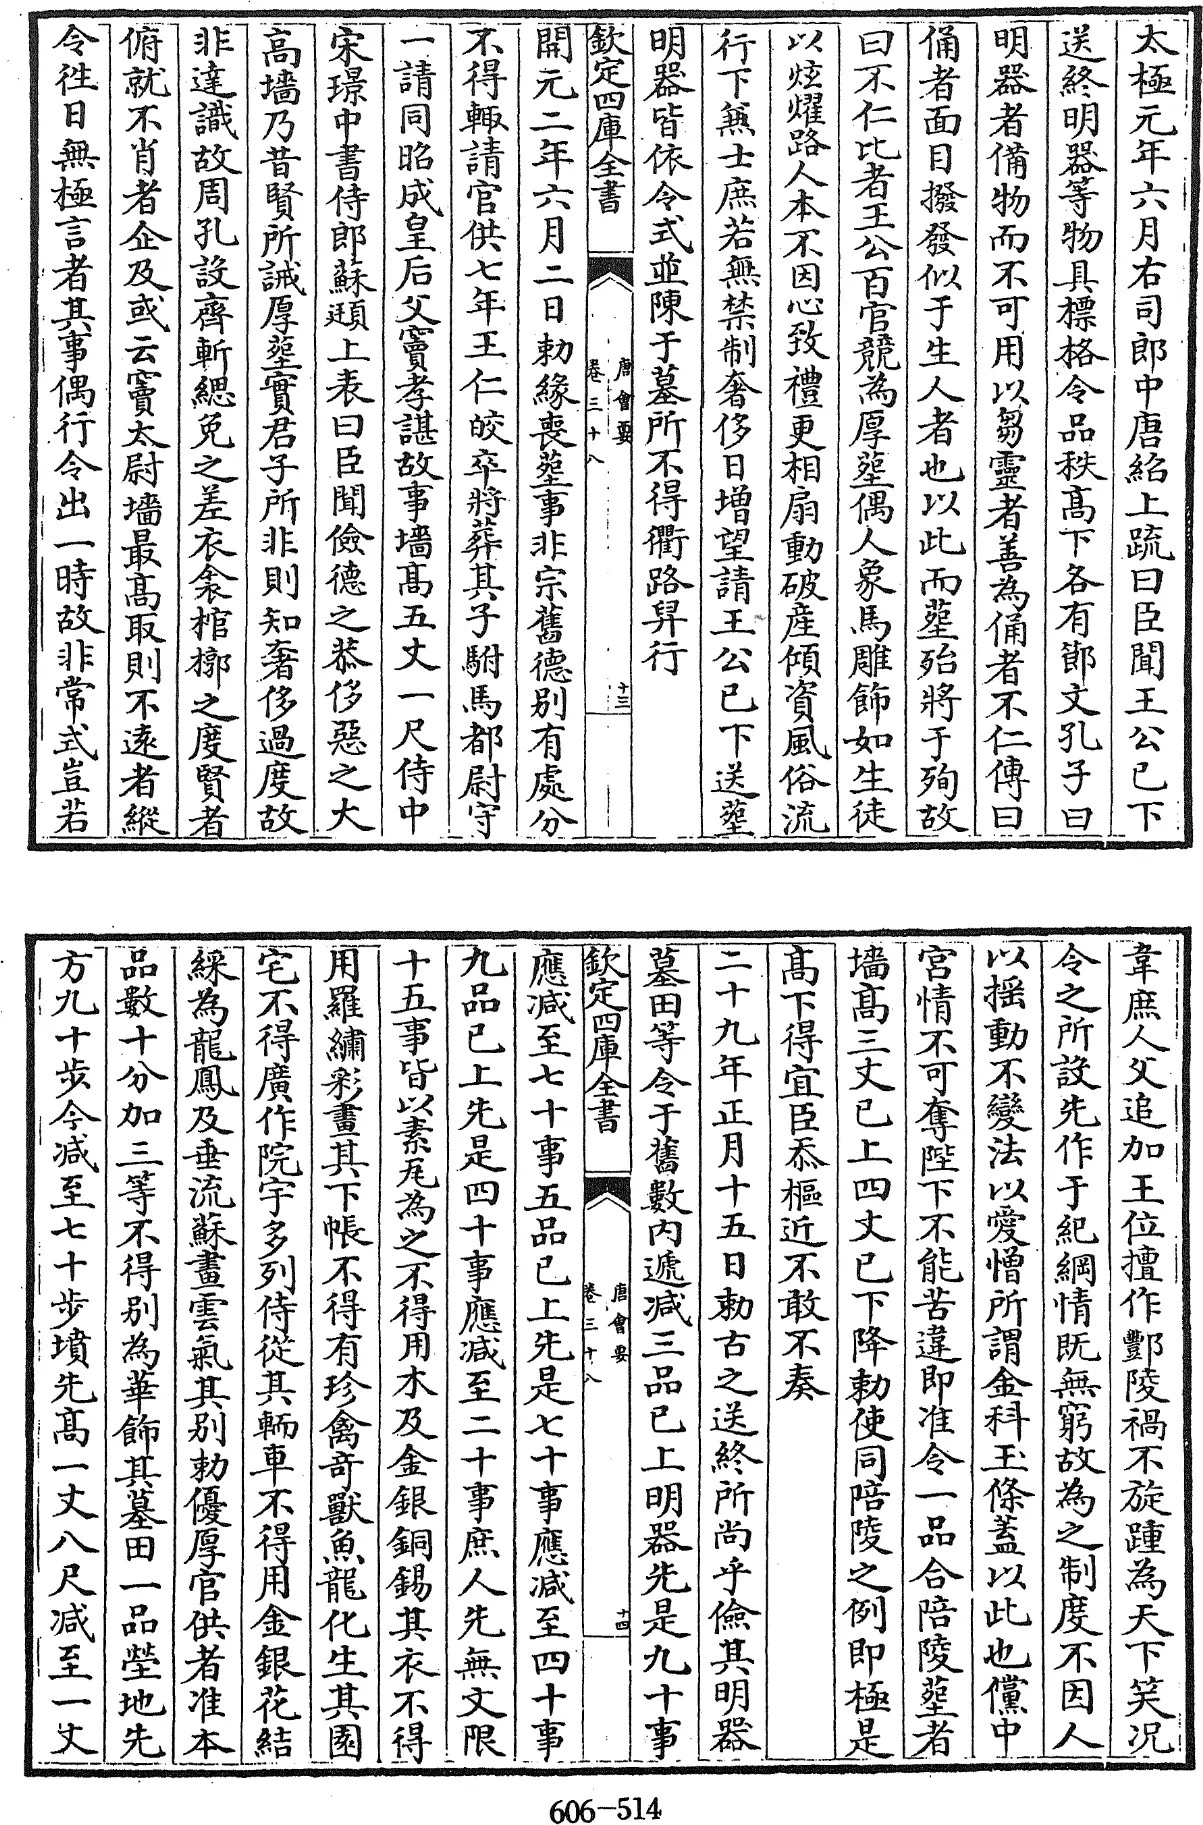 太極元年六月右司郎中唐紹上疏曰臣聞王公已下
送終明器等物具標格令品秩高下各有節文孔子曰
明器者備物而不可用以芻靈者善為俑者不仁傳曰
俑者面目撥發似于生人者也以此而塟殆將于殉故
曰不仁比者王公百官競為厚塟偶人象馬雕飾如生徒
以炫燿路人本不因心致禮更相扇動破產傾資風俗流
行下無士庶若無禁制奢侈日增望請王公已下送塟
明器皆依令式並陳于墓所不得衢路舁行
欽定四庫全書
唐會要
卷三十八
十三
開元二年六月二日勅緣喪塟事非宗舊德別有處分
不得輙請官供七年王仁皎卒將葬其子駙馬都尉守
一請同昭成皇后父竇孝諶故事墻高五丈一尺侍中
宋璟中書侍郎蘇頲上表曰臣聞儉德之恭侈惡之大
高墻乃昔賢所誡厚塟實君子所非則知奢侈過度故
非達識故周孔設齊斬緦免之差衣衾棺槨之度賢者
俯就不肖者企及或云竇太尉墻最高取則不遠者縱
令往日無極言者其事偶行令出一時故非常式豈若
韋庶人父追加王位擅作酆陵禍不旋踵為天下笑况
令之所設先作于紀綱情既無窮故為之制度不因人
以揺動不變法以愛憎所謂金科玉條蓋以此也儻中
宮情不可奪陛下不能苦違即准令一品合陪陵塟者
墻高三丈已上四丈已下降勅使同陪陵之例即極是
高下得宜臣忝樞近不敢不奏
二十九年正月十五日勅古之送終所尚乎儉其明器
墓田等令于舊數内遞减三品已上明器先是九十事
欽定四庫全書
唐會要
卷三十八
十四
應减至七十事五品已上先是七十事應减至四十事
九品已上先是四十事應减至二十事庶人先無文限
十五事皆以素瓦為之不得用木及金銀銅錫其衣不得
用羅繡彩畫其下帳不得有珍禽奇獸魚龍化生其園
宅不得廣作院宇多列侍從其輀車不得用金銀花結
綵為龍鳳及垂流蘇畫雲氣其別勅優厚官供者准本
品數十分加三等不得別為華飾其墓田一品塋地先
方九十步今减至七十步墳先高一丈八尺减至一丈
606-514